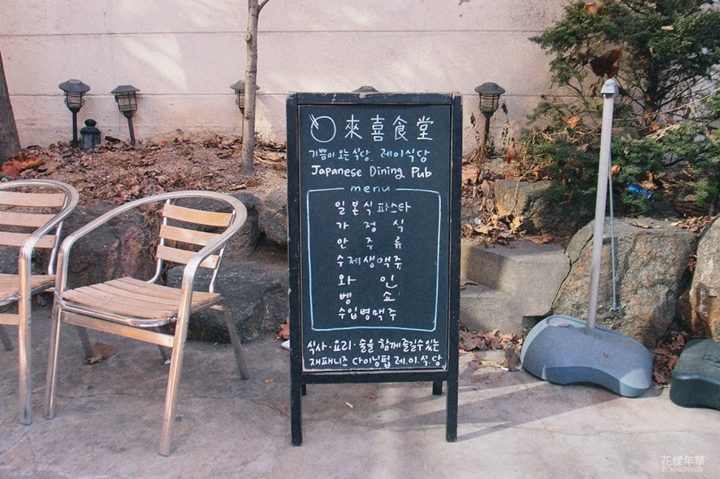 來喜食堂
기쁨이 오는 식당, 레이식당
Japanese Dining Pub
menu
일본식 파스타
가정식
안주류
수제생맥쥬
와인
벵쇼
수입병맥주
식사·요리·술을 함께 즐길수있는
재패니즈 다이닝펍 레.이.식당
花樣年華